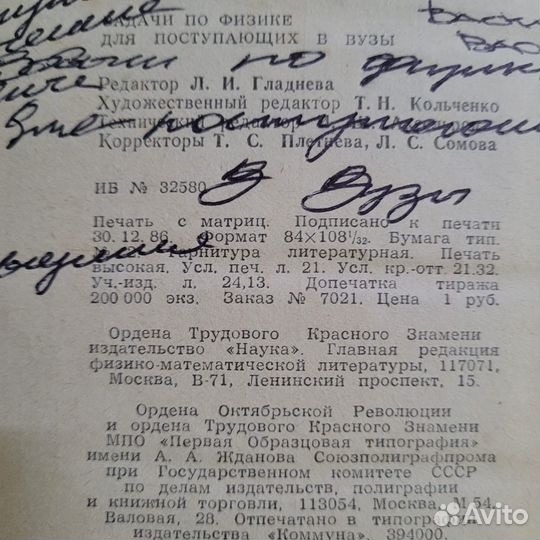 ЗАДАЧИ ПО ФИЗИКЕ
ДЛЯ ПОСТУПАЮЩИХ В ВУЗЫ
Задачи по
Редактор Л. И. Гладнева
Художественный редактор Т. Н. Кольченко
Технический редактор
Корректоры Т. С. Плетнева, Л. С. Сомова
ИБ № 32580
в Вузы
Печать с матриц. Подписано к печати
30.12.86. Формат 84×108¹/₃₂. Бумага тип.
Гарнитура литературная. Печать
высокая. Усл. печ. л. 21. Усл. кр.-отт. 21.32.
Уч.-изд. л. 24,13. Допечатка тиража
200 000 экз. Заказ № 7021. Цена 1 руб.
Ордена Трудового Красного Знамени
издательство «Наука». Главная редакция
физико-математической литературы, 117071,
Москва, В-71, Ленинский проспект, 15.
Ордена Октябрьской Революции
и ордена Трудового Красного Знамени
МПО «Первая Образцовая типография»
имени А. А. Жданова Союзполиграфпрома
при Государственном комитете СССР
по делам издательств, полиграфии
и книжной торговли, 113054, Москва, М-54,
Валовая, 28. Отпечатано в типографии
издательства «Коммуна», 394000,
Avito